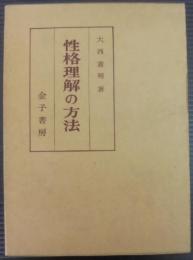 大西憲明著
性格理解の方法
金子書房